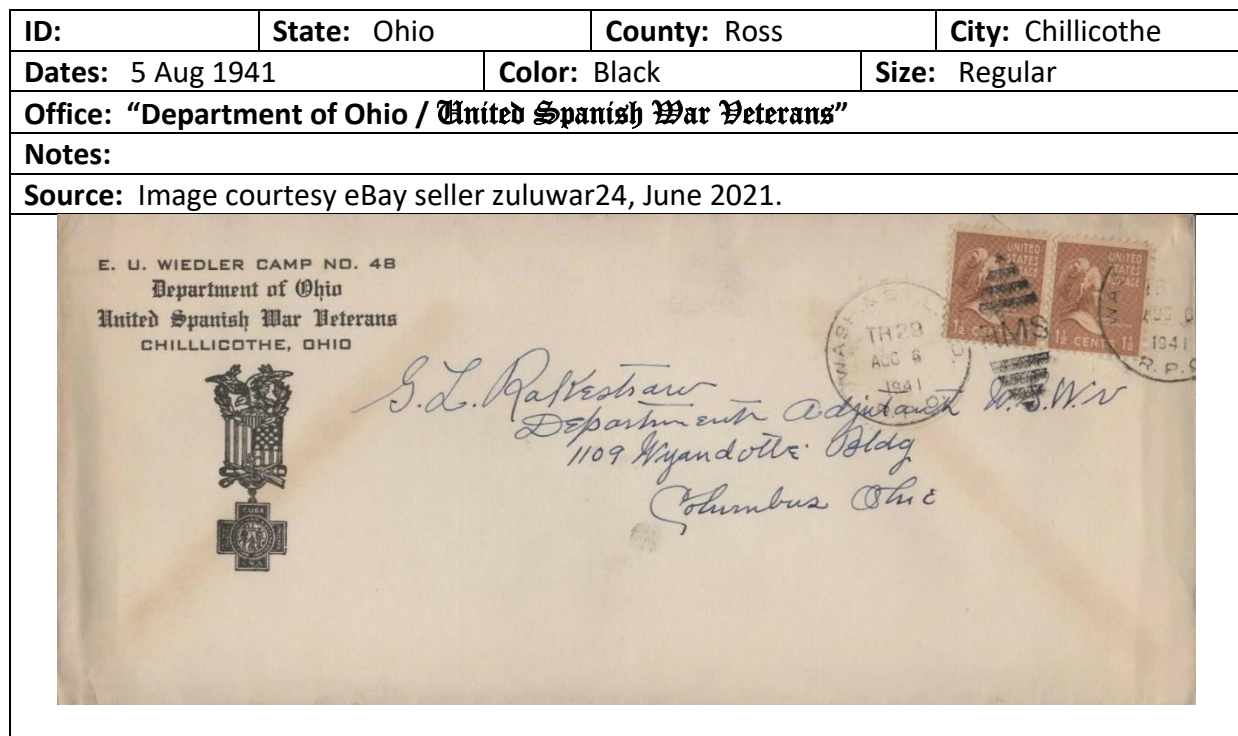 ID: State: Ohio County: Ross City: Chillicothe
Dates: 5 Aug 1941 Color: Black Size: Regular
Office: “Department of Ohio / United Spanish War Veterans”
Notes:
Source: Image courtesy eBay seller zuluwar24, June 2021.
E. U. WIEDLER CAMP NO. 48
Department of Ohio
United Spanish War Veterans
CHILLLICOTHE, OHIO
CUBA
U.S.A.
UNITED STATES POSTAGE
1½ CENTS 1½
UNITED STATES POSTAGE
1½ CENTS 1½
WASH
TR 29
AUG 6
1941
RMS
1941
R.P.O
G. L. Rakestraw
Department Adjutant U.S.W.V
1109 Wyandotte Bldg
Columbus Ohio